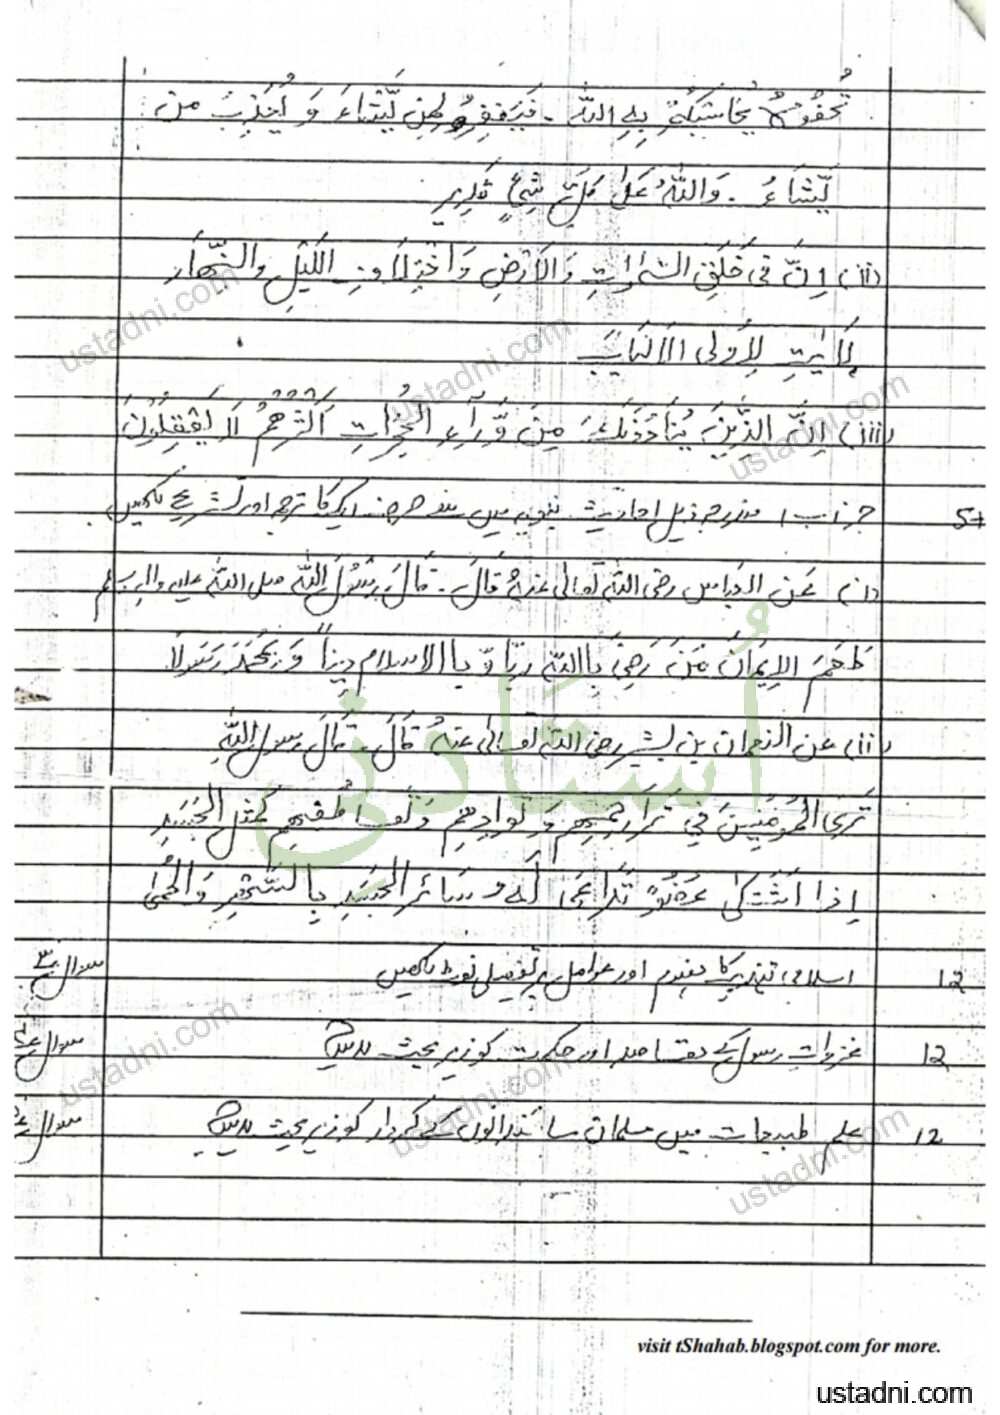 تُخْفُوْهُ يُحَاسِبْكُمْ بِهِ اللّٰه ۔ فَيَغْفِرُ لِمَنْ يَّشَاءَ وَ يُعَذِّبُ مَنْ
يَّشَاءُ ۔ وَاللّٰهُ عَلٰى كُلِّ شَىْءٍ قَدِير
(ii) اِنَّ فِىْ خَلْقِ السَّمٰوٰتِ وَالْاَرْضِ وَاخْتِلَافِ اللَّيْلِ وَالنَّهَار
لَاٰيٰتِ لِاُولِى الْاَلْبَابِ
(iii) اِنَّ الَّذِيْنَ يُنَادُوْنَكَ مِنْ وَّرَآءِ الْحُجُرَاتِ اَكْثَرُهُمْ لَا يَعْقِلُوْنَ
جز ب، مندرجہ ذیل احادیث نبویہ میں سے صرف ایک کا ترجمہ اور تشریح لکھیں 5
(i) عَن العباس رضی اللہ تعالیٰ عنہُ قَالَ ۔ قَالَ رَسُوْلُ اللّٰه صلی اللہ علیہ والہ وسلم
طَعْمَ الاِيْمَانَ مَنْ رَضِىَ بِاللّٰهِ رَبًّا وَّ بِالاسلام دِيْنًا وَّ بِمُحَمَّدٍ رَسُوْلاً
(ii) عَن النعمان بن بشیر رضی اللہ تعالیٰ عنہُ قَالَ، قَالَ رسول اللّٰهِ
تَرَى الْمُؤْمِنِيْنَ فِىْ تَرَاحُمِهِمْ وَتَوَادِّهِمْ وَتَعَاطُفِهِمْ كَمَثَلِ الْجَسَدِ
اِذَا اشْتَكٰى عَضْوًا تَدَاعٰى لَهُ سَائِرُ الْجَسَدِ بِالسَّهَرِ وَالْحُمّٰى
سوال اسلامی تہذیب کا مفہوم اور عوامل پر تفصیلی نوٹ لکھیں 12
سوال غزوات رسول کے مقاصد اور حکمت کو زیر بحث لائیں 12
سوال علم طبیعات میں مسلمان سائنسدانوں کے کردار کو زیر بحث لائیں 12
اُستاذنی
ustadni.com
ustadni.com
ustadni.com
ustadni.com
ustadni.com
ustadni.com
visit tShahab.blogspot.com for more.
ustadni.com